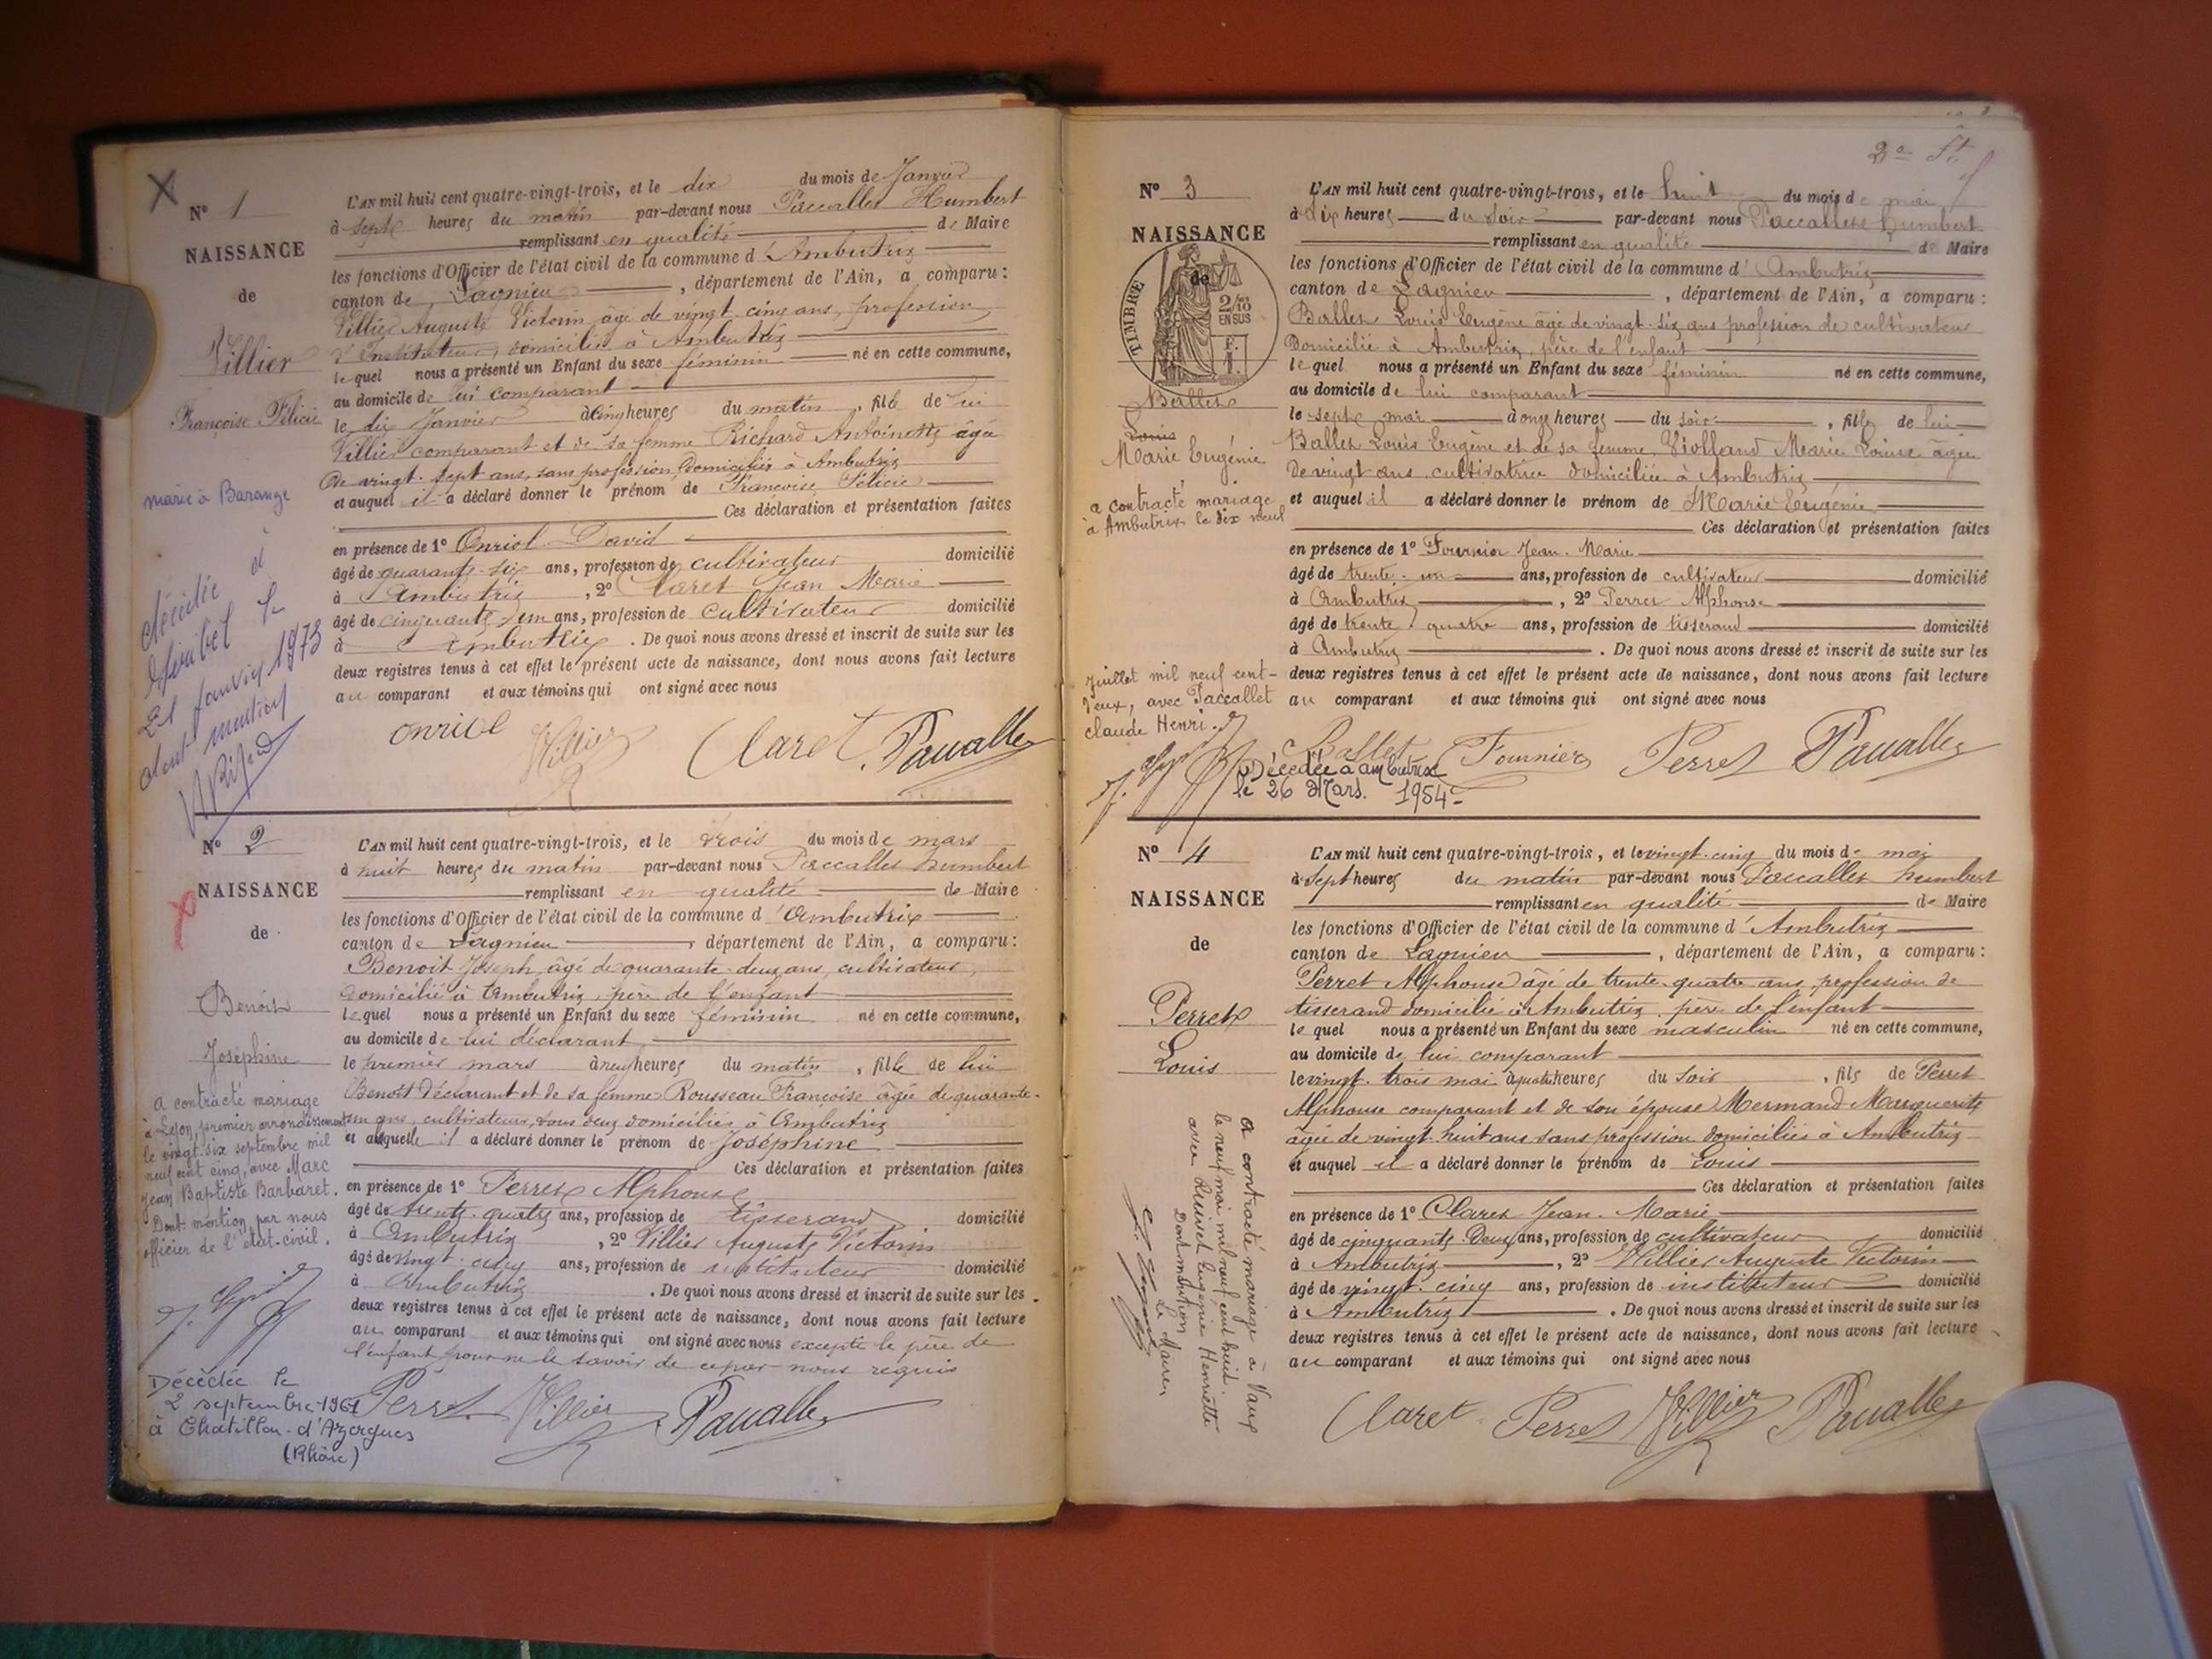 X
N° 1
NAISSANCE
de
Villier
Françoise Félicie
marié à Barange
décédée à
le
21 janvier 1973
dont mention
L'AN mil huit cent quatre-vingt-trois, et le dix du mois de Janvier
à sept heures du matin par-devant nous Paccallet Humbert
remplissant en qualité de Maire
les fonctions d'Officier de l'état civil de la commune d'Ambutrix
canton de Lagnieu, département de l'Ain, a comparu :
Villier Auguste Victorin âgé de vingt cinq ans, profession
d'Instituteur, domicilié à Ambutrix
lequel nous a présenté un Enfant du sexe féminin né en cette commune,
au domicile de lui comparant
le dix Janvier à cinq heures du matin, fille de lui
Villier comparant et de sa femme Richard Antoinette âgée
de vingt-sept ans, sans profession domiciliés à Ambutrix
et auquel il a déclaré donner le prénom de Françoise Félicie
Ces déclaration et présentation faites
en présence de 1° Onriol David
âgé de quarante-six ans, profession de cultivateur domicilié
à Ambutrix, 2° Claret Jean Marie
âgé de cinquante un ans, profession de cultivateur domicilié
à Ambutrix. De quoi nous avons dressé et inscrit de suite sur les
deux registres tenus à cet effet le présent acte de naissance, dont nous avons fait lecture
au comparant et aux témoins qui ont signé avec nous
onriol Villier Claret Paccallet
N° 2
NAISSANCE
de
Benoit
Joséphine
a contracté mariage
à Lyon, premier arrondissement
le vingt-six septembre mil
neuf cent cinq, avec Marc
Jean Baptiste Barbaret.
Dont mention par nous
officier de l'état-civil.
Décédée le
2 septembre 1961
à Chatillon-d'Azergues
(Rhône)
L'AN mil huit cent quatre-vingt-trois, et le trois du mois de mars
à huit heures du matin par-devant nous Paccallet humbert
remplissant en qualité de Maire
les fonctions d'Officier de l'état civil de la commune d'Ambutrix
canton de Lagnieu, département de l'Ain, a comparu :
Benoit Joseph, âgé de quarante-deux ans, cultivateur,
domicilié à Ambutrix, père de l'enfant
lequel nous a présenté un Enfant du sexe féminin né en cette commune,
au domicile de lui déclarant
le premier mars à neuf heures du matin, fille de lui
Benoit déclarant et de sa femme Rousseau Françoise âgée de quarante-
un ans, cultivateurs, tous deux domiciliés à Ambutrix
et auquelle il a déclaré donner le prénom de Joséphine
Ces déclaration et présentation faites
en présence de 1° Perret Alphonse
âgé de trente-quatre ans, profession de tisserand domicilié
à Ambutrix, 2° Villier Auguste Victorin
âgé de vingt-cinq ans, profession de instituteur domicilié
à Ambutrix. De quoi nous avons dressé et inscrit de suite sur les
deux registres tenus à cet effet le présent acte de naissance, dont nous avons fait lecture
au comparant et aux témoins qui ont signé avec nous excepté le père de
l'enfant pour ne le savoir de ce par nous requis
Perret Villier Paccallet
2e ft
N° 3
NAISSANCE
de
TIMBRE
2/10
EN SUS
F.
1.
Ballet
Louis
Marie Eugénie
a contracté mariage
à Ambutrix le dix neuf
juillet mil neuf cent-
deux, avec Paccallet
claude Henri.
Décédée à ambutrix
le 26 Mars 1954
L'AN mil huit cent quatre-vingt-trois, et le huit du mois de mai
à dix heures du soir par-devant nous Paccallet humbert
remplissant en qualité de Maire
les fonctions d'Officier de l'état civil de la commune d'Ambutrix
canton de Lagnieu, département de l'Ain, a comparu :
Ballet Louis Eugène âgé de vingt-six ans profession de cultivateur
domicilié à Ambutrix, père de l'enfant
lequel nous a présenté un Enfant du sexe féminin né en cette commune,
au domicile de lui comparant
le sept mai à onze heures du soir, fille de lui
Ballet Louis Eugène et de sa femme Violland Marie Louise âgée
de vingt ans, cultivatrice domiciliée à Ambutrix
et auquel il a déclaré donner le prénom de Marie Eugénie
Ces déclaration et présentation faites
en présence de 1° Fournier Jean-Marie
âgé de trente-un ans, profession de cultivateur domicilié
à Ambutrix, 2° Perret Alphonse
âgé de trente quatre ans, profession de tisserand domicilié
à Ambutrix. De quoi nous avons dressé et inscrit de suite sur les
deux registres tenus à cet effet le présent acte de naissance, dont nous avons fait lecture
au comparant et aux témoins qui ont signé avec nous
Ballet Fournier Perret Paccallet
N° 4
NAISSANCE
de
Perret
Louis
a contracté mariage à Vaux
le neuf mai mil neuf cent huit
avec Quinet Eugénie Henriette
Dont mention
Le Maire,
L'AN mil huit cent quatre-vingt-trois, et le vingt-cinq du mois de mai
à sept heures du matin par-devant nous Paccallet humbert
remplissant en qualité de Maire
les fonctions d'Officier de l'état civil de la commune d'Ambutrix
canton de Lagnieu, département de l'Ain, a comparu :
Perret Alphonse âgé de trente-quatre ans, profession de
tisserand domicilié à Ambutrix, père de l'enfant
lequel nous a présenté un Enfant du sexe masculin né en cette commune,
au domicile de lui comparant
le vingt-trois mai à quatre heures du soir, fils de Perret
Alphonse comparant et de son épouse Mermand Marguerite
âgée de vingt-huit ans sans profession domiciliés à Ambutrix
et auquel il a déclaré donner le prénom de Louis
Ces déclaration et présentation faites
en présence de 1° Claret Jean-Marie
âgé de cinquante-deux ans, profession de cultivateur domicilié
à Ambutrix, 2° Villier Auguste Victorin
âgé de vingt-cinq ans, profession de instituteur domicilié
à Ambutrix. De quoi nous avons dressé et inscrit de suite sur les
deux registres tenus à cet effet le présent acte de naissance, dont nous avons fait lecture
au comparant et aux témoins qui ont signé avec nous
Claret Perret Villier Paccallet